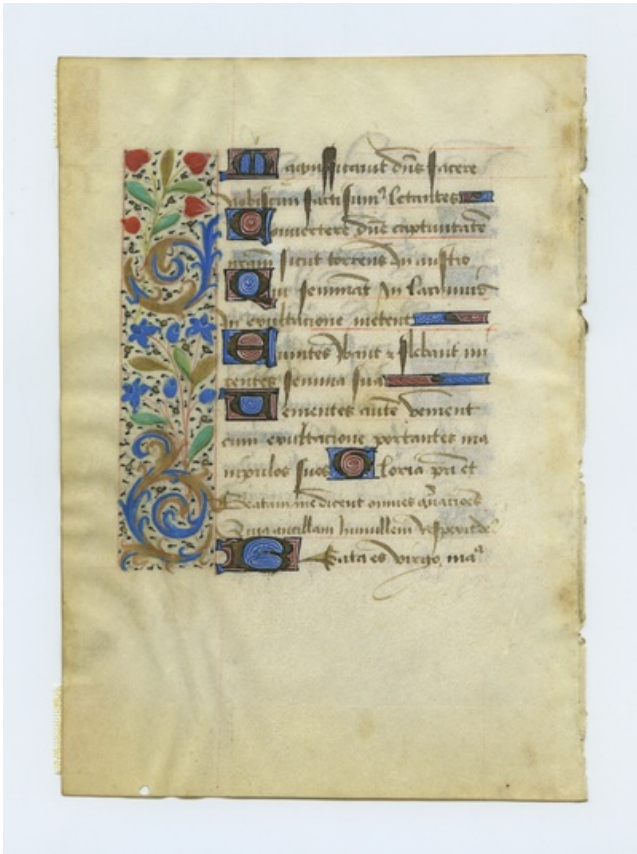 Magnificavit dñs facere
nobiscum facti sumꝰ letantes
Convertere dñe captivitatẽ
nram sicut torrens in austro
Qui seminãt in lacrimis
in exultacione metent
Euntes ibant ⁊ flebant mi
tentes semina sua
Venientes autẽ venient
cum exultacione portantes ma
nipulos suos Gloria pri et
Beatam me dicent omnes
Quia ancillam humilem respexit de
Beata es virgo ma